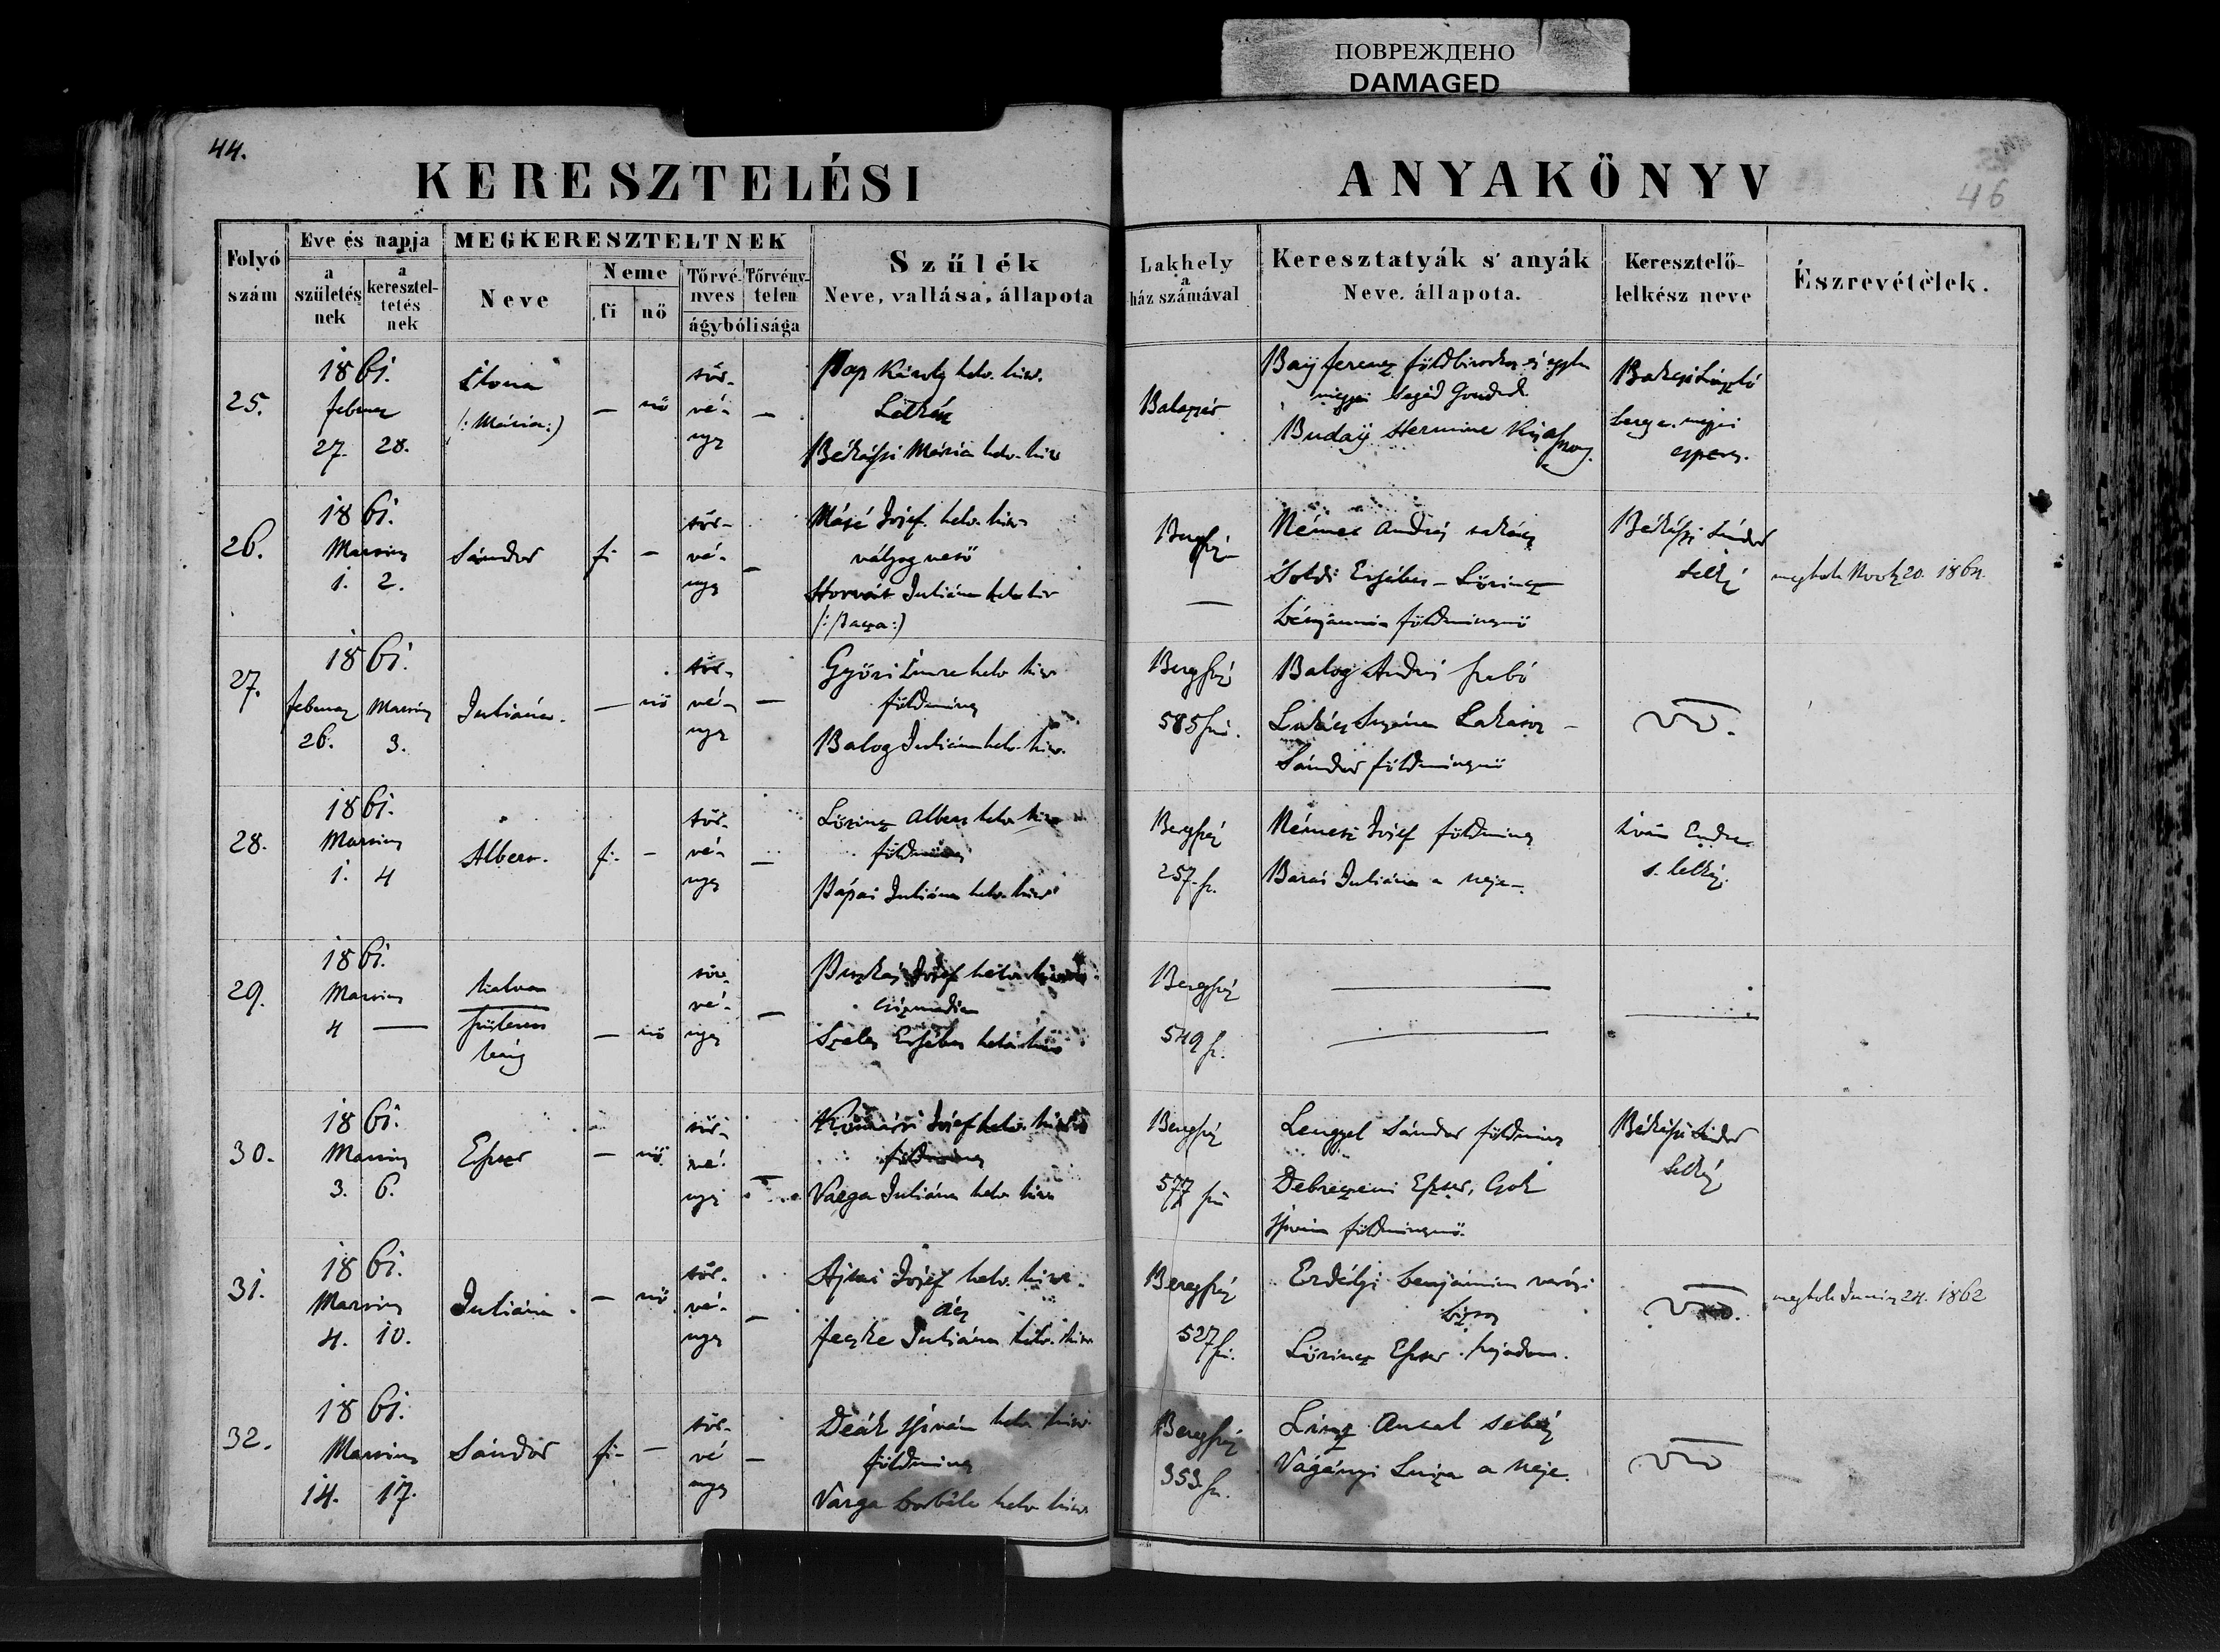 ПОВРЕЖДЕНО
DAMAGED
44.
46
KERESZTELÉSI ANYAKÖNYV
Folyó szám
Eve és napja
a születés nek
a keresztel- tetés nek
MEGKERESZTELTNEK
Neve
Neme
fi
nő
Törvé- nyes
Törvény- telen
ágybólisága
Szűlék
Neve, vallása, állapota
Lakhely
a
ház számával
Keresztatyák s' anyák
Neve, állapota.
Keresztelő-
lelkész neve
Észrevételek.
25.
1861.
februar
27. 28.
Ilona
(: Mária :)
—
nő
tör-
vé-
nyes
—
Pap Károly helv. hitv.
Lelkész
Békéssi Mária helv. hitv
Balazsér
Baÿ Ferencz földbirtokos és
megyei segéd
Budaÿ Hermine
László
megyei
esperes.
26.
1861.
Martius
1. 2.
Sándor
fi
—
tör-
vé-
nyes
—
Józef helv. hitv
vályog vető
Horvát Juliána helv hitv
Beregsz.
—
Német András
Erzsébet – Lőrincz
Benjamin földmivesnő
Békéssi Sándor
lelkész
megholt 20. 1864.
27.
1861.
februar Martius
26. 3.
Juliána.
—
nő
tör-
vé-
nyes
—
Győri Imre helv hitv
földmives
Balog Juliána helv. hitv.
Beregsz
585 sz.
Balog András szabó
Lukács Zsuzsána
Sándor földmivesnő
28.
1861.
Martius
1. 4
Albert.
fi.
—
tör-
vé-
nyes
—
Lőrincz Albert helv hitv
földmives
Pápai Juliána helv. hitv
Beregsz
257. sz.
Németi Józef földmives
Juliána a neje.
Endre
s. lelkész.
29.
1861.
Martius
4 —
halva
született
leány
—
nő
tör-
vé-
nyes
—
Puskás Józef helv. hitv
csizmadia
Szeles Erzsébet helv. hitv
Beregsz
549 sz.
30.
1861.
Martius
3. 6.
Eszter
—
nő
tör-
vé-
nyes
—
Józef helv. hitv
földmives
Varga Juliána helv. hitv
Beregsz
577 sz
Lengyel Sándor földmives
Debreczeni Eszter,
István földmivesnő.
Békéssi Sándor
lelkész
31.
1861.
Martius
4. 10.
Juliána.
—
nő
tör-
vé-
nyes
—
Ajtai Józef helv. hitv.
ács
Fecske Juliána helv. hitv
Beregsz
527 sz.
Erdélyi Benjámin városi
Lőrincz Eszter hajadon.
megholt Junius 24. 1862
32.
1861.
Martius
14. 17.
Sándor
fi-
—
tör-
vé
nyes
—
Deák István helv hitv.
földmives
Varga Borbála helv hitv.
Beregsz
353. sz.
Antal
Vágányi Luiza a neje.